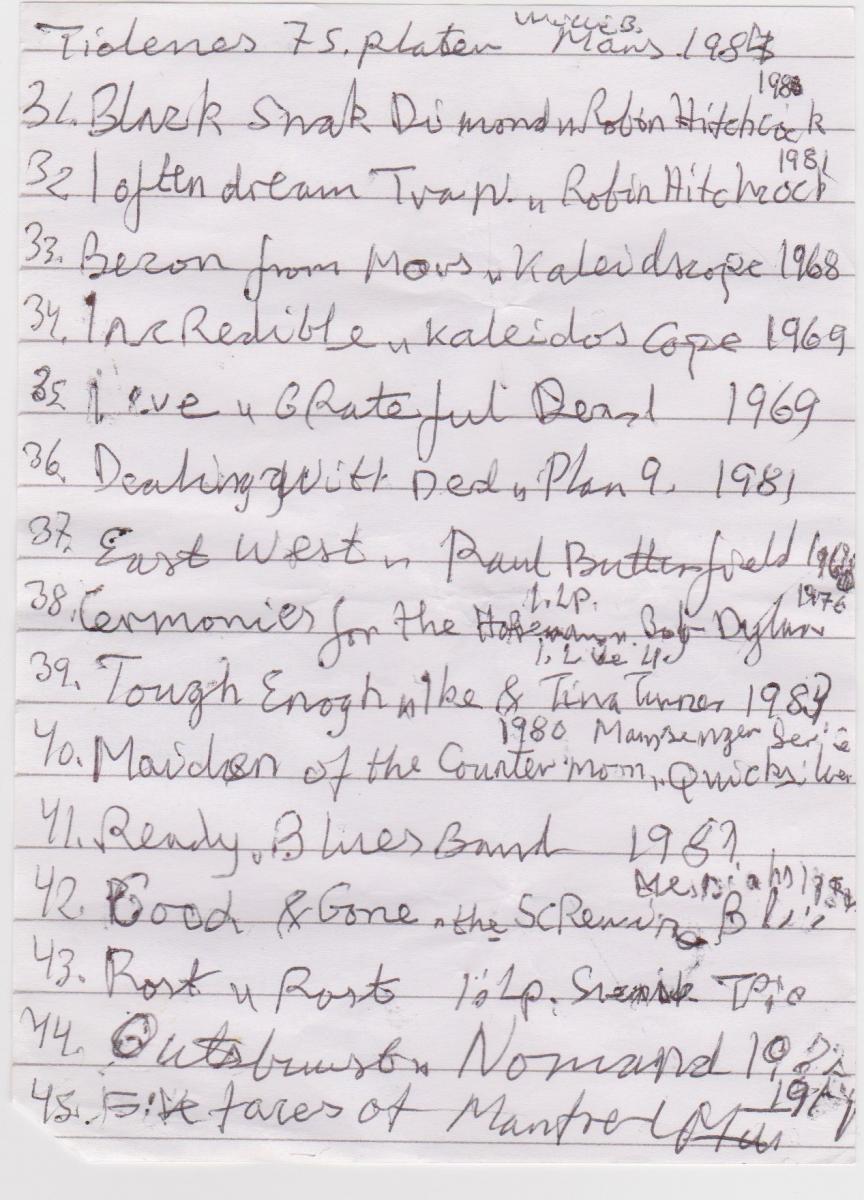 Tidenes 75. platen Mars 198
1988
31. Black Snak Dimond " Robin Hitchcock
1981
32 I often dream Trap. " Robin Hitchrock
33. Becon from Mars " Kaleidscope 1968
34. Incredible " Kaleidos Cope 1969
35 Live " GRateful Dead 1969
36. Dealing Witt Ded " Plan 9. 1981
37. East West " Paul Butterfield 196
1. Lp. 1976
38. Cermonies for the Bob Dylan
1. Live
39. Tough Enogh " Ike & Tina Turner 198
1980 Serie
40. Maiden of the Counter mom " Quicksilver
41. Ready " Blues Band 198
42. Good & Gone " the ScReming Blu
43. Rost " Rost 1. Lp. Svensk
44. Outsburst " Nomand 19
197
45. Five faces of Manfred Man